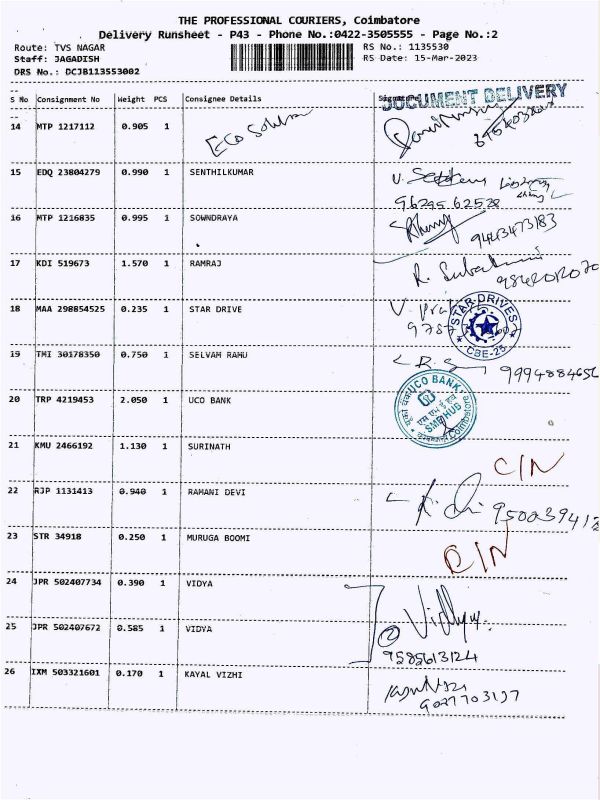 THE PROFESSIONAL COURIERS, Coimbatore
Delivery Runsheet - P43 - Phone No.:0422-3505555 - Page No.:2
Route: TVS NAGAR RS No.: 1135530
Staff: JAGADISH RS Date: 15-Mar-2023
DRS No.: DCJB113553002
DOCUMENT DELIVERY
S No Consignment No Weight PCS Consignee Details Signature
14 MTP 1217112 0.905 1
15 EDQ 23804279 0.990 1 SENTHILKUMAR
96295 62528
16 MTP 1216835 0.995 1 SOWNDRAYA 9443473183
17 KDI 519673 1.570 1 RAMRAJ R.
18 MAA 298854525 0.235 1 STAR DRIVE V.
STAR DRIVES
CBE-25
19 TMI 30178350 0.750 1 SELVAM RAMU 9994884656
20 TRP 4219453 2.050 1 UCO BANK
UCO BANK
SME HUB
Coimbatore
21 KMU 2466192 1.130 1 SURINATH C/N
22 RJP 1131413 0.940 1 RAMANI DEVI
23 STR 34918 0.250 1 MURUGA BOOMI C/N
24 JPR 502407734 0.390 1 VIDYA
25 JPR 502407672 0.585 1 VIDYA Vidhya.
2
9585613124
26 IXM 503321601 0.170 1 KAYAL VIZHI
9027703197